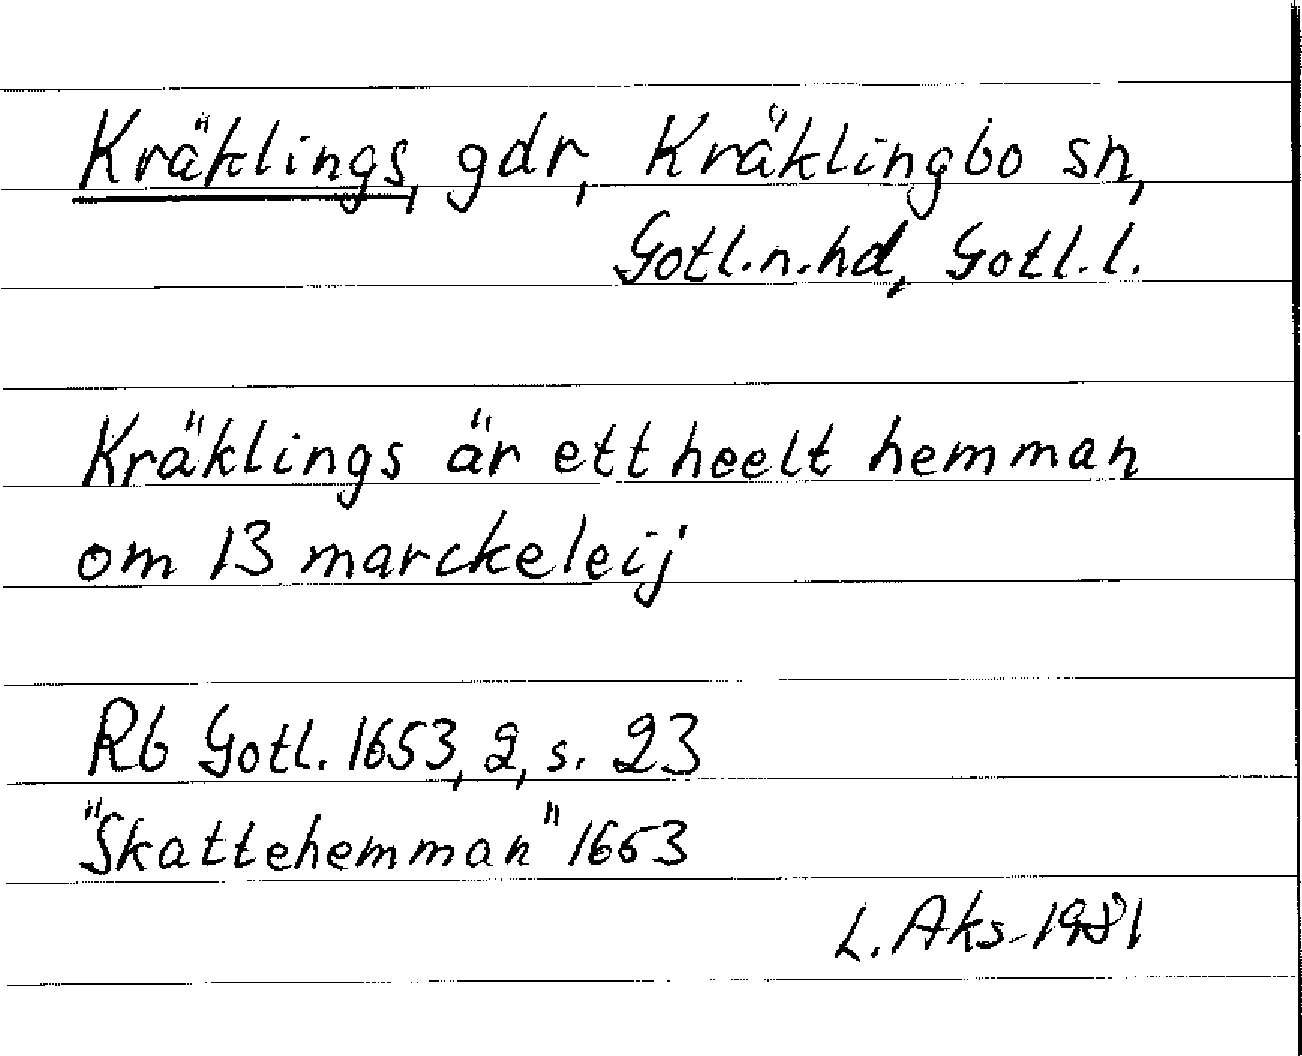 Kräklings, gdr, Kräklingbo sn,
Gotl.n.hd, Gotl.l.
Kräklings är ett heelt hemman
om 13 marckeleij
Rb Gotl. 1653, 2, s. 23
"Skattehemman" 1653
L. Aks. 1981